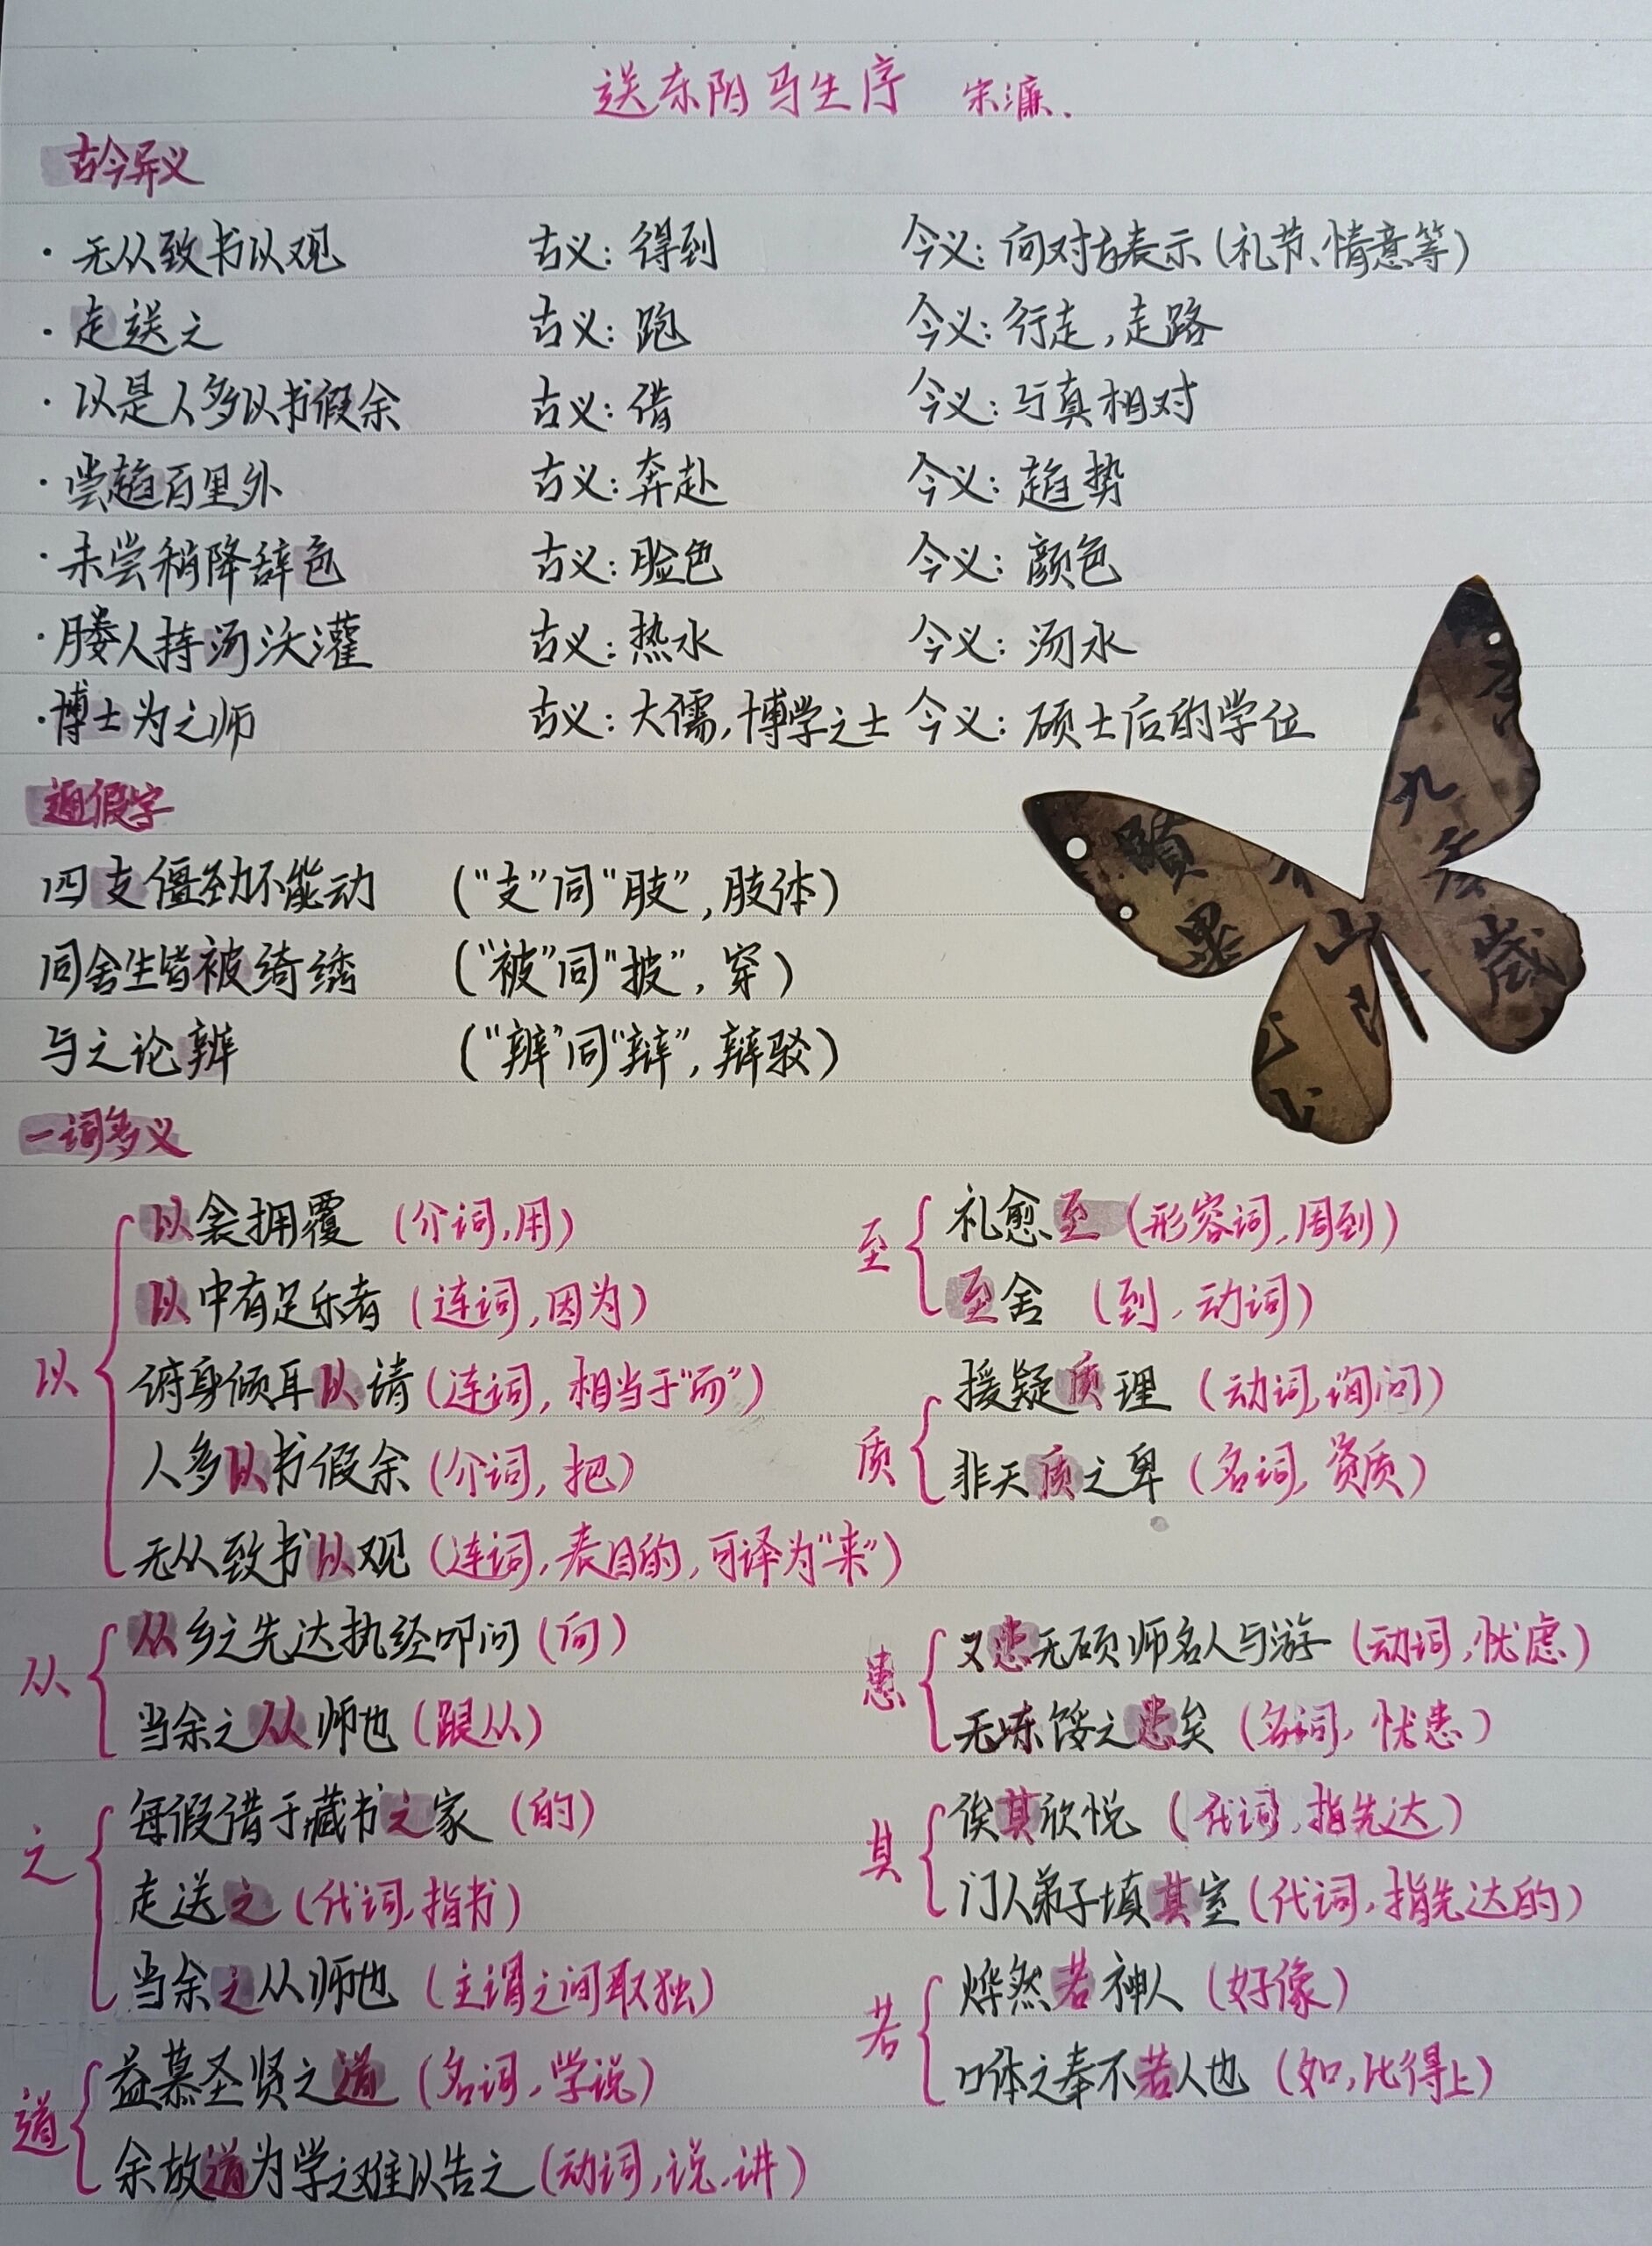 送东阳马生序 宋濂.
古今异义
·无从致书以观 古义:得到 今义:向对方表示(礼节、情意等)
·走送之 古义:跑 今义:行走,走路
·以是人多以书假余 古义:借 今义:与真相对
·尝趋百里外 古义:奔赴 今义:趋势
·未尝稍降辞色 古义:脸色 今义:颜色
·媵人持汤沃灌 古义:热水 今义:汤水
·博士为之师 古义:大儒,博学之士 今义:硕士后的学位
通假字
四支僵劲不能动 (“支”同“肢”,肢体)
同舍生皆被绮绣 (“被”同“披”,穿)
与之论辨 (“辨”同“辩”,辩驳)
一词多义
以
以衾拥覆 (介词,用)
以中有足乐者 (连词,因为)
俯身倾耳以请 (连词,相当于“而”)
人多以书假余 (介词,把)
无从致书以观 (连词,表目的,可译为“来”)
至
礼愈至 (形容词,周到)
至舍 (到,动词)
质
援疑质理 (动词,询问)
非天质之卑 (名词,资质)
从
从乡之先达执经叩问 (向)
当余之从师也 (跟从)
患
又患无硕师名人与游 (动词,忧虑)
无冻馁之患矣 (名词,忧患)
之
每假借于藏书之家 (的)
走送之 (代词,指书)
当余之从师也 (主谓之间取独)
其
俟其欣悦 (代词,指先达)
门人弟子填其室 (代词,指先达的)
道
益慕圣贤之道 (名词,学说)
余故道为学之难以告之 (动词,说、讲)
若
烨然若神人 (好像)
口体之奉不若人也 (如,比得上)
山
歲
墨
九